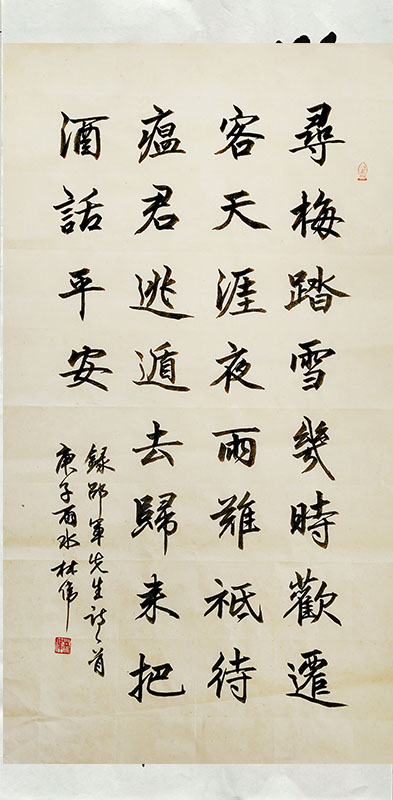 尋梅踏雪幾時歡遷
客天涯夜雨難祗待
瘟君逃遁去歸来把
酒話平安
録邵軍先生詩一首
庚子雨水林伟